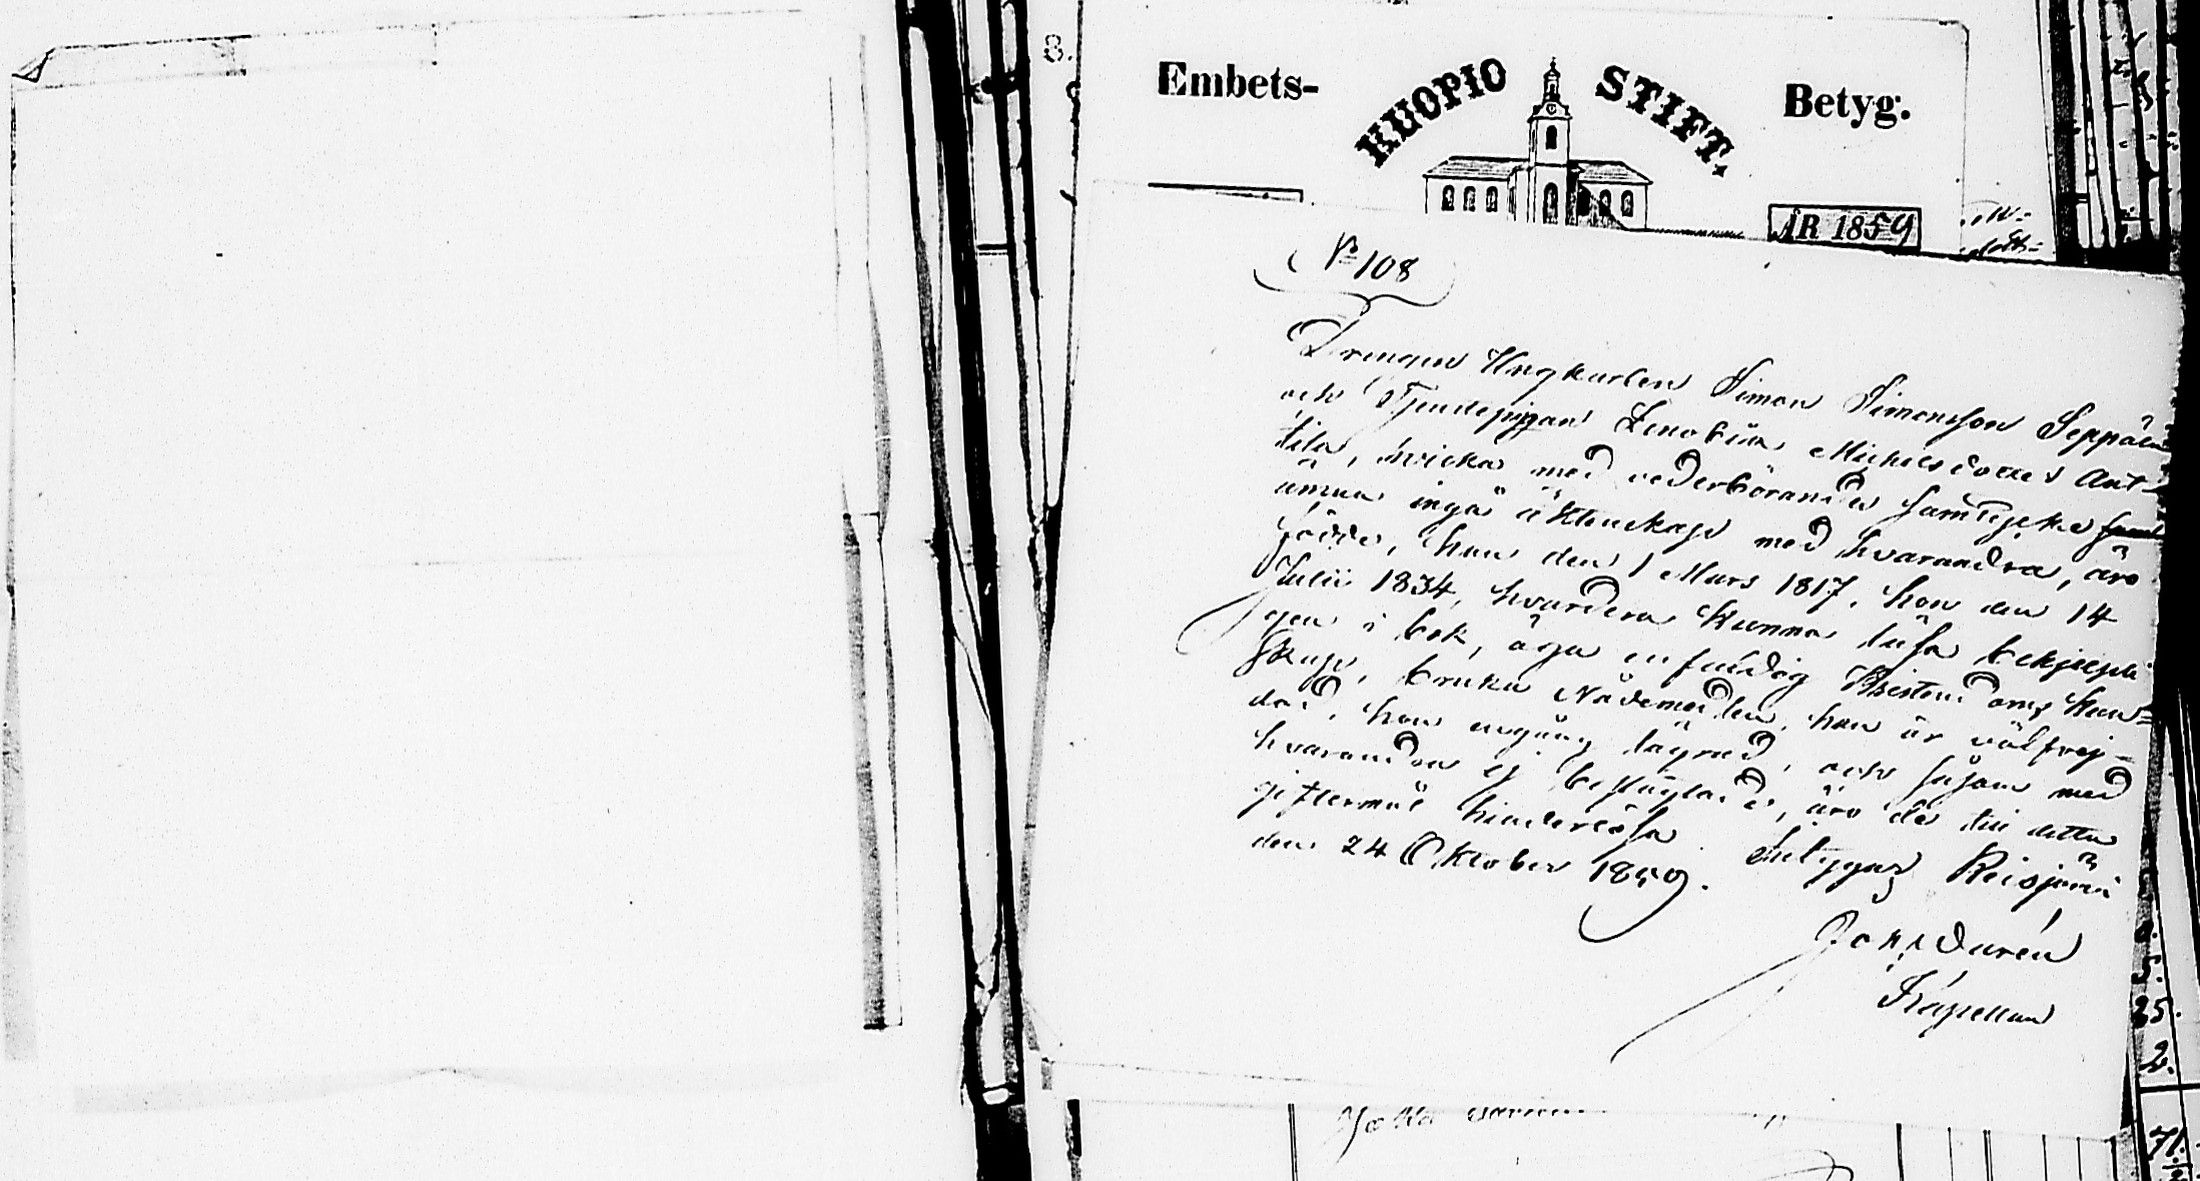 8.
Embets- KUOPIO STIFT. Betyg.
ÅR 1859
No 108
Drengen Ungkarlen Simon Simonsson Seppälä
och Tjenstepigan Zenobia Michelsdotter Ant-
tila, hvilka med vederbörandes samtycke
ämna ingå äktenskap med hvarandra, äro
födde, han den 1 Mars 1817, hon den 14
Julii 1834, hvardera kunna läsa
i bok, äga enfaldig Christendoms kun-
skap, bruka Nådemedlen, han är välfrej-
dad, hon engång lägrad, och såsom med
hvarandra ej beslägtade, äro de till detta
giftermål hinderlösa. Intygar Reisjärvi
den 24 Oktober 1859.
Joh. Durén
Kapellan
5.
25.
2.
71.